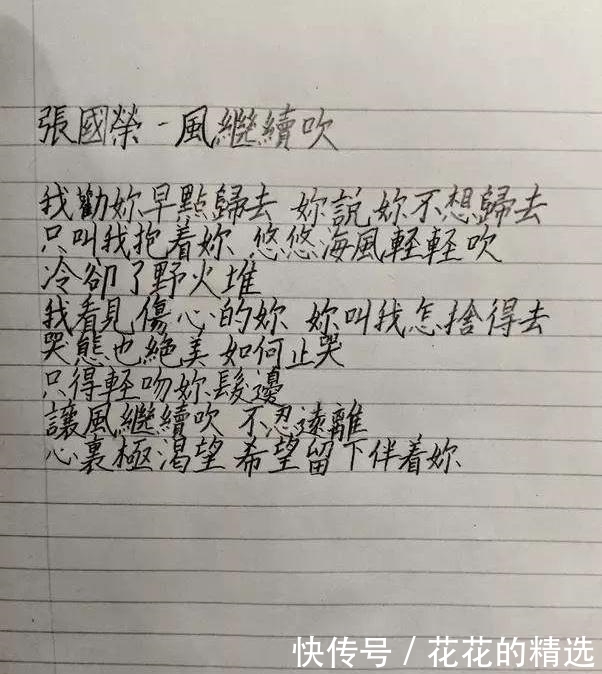 張國榮-風繼續吹
我勸妳早點歸去 妳說妳不想歸去
只叫我抱着妳 悠悠海風輕輕吹
冷卻了野火堆
我看見傷心的妳 妳叫我怎捨得去
哭態也絕美 如何止哭
只得輕吻妳髮邊
讓風繼續吹 不忍遠離
心裏極渴望 希望留下伴着妳
快传号/花花的精选